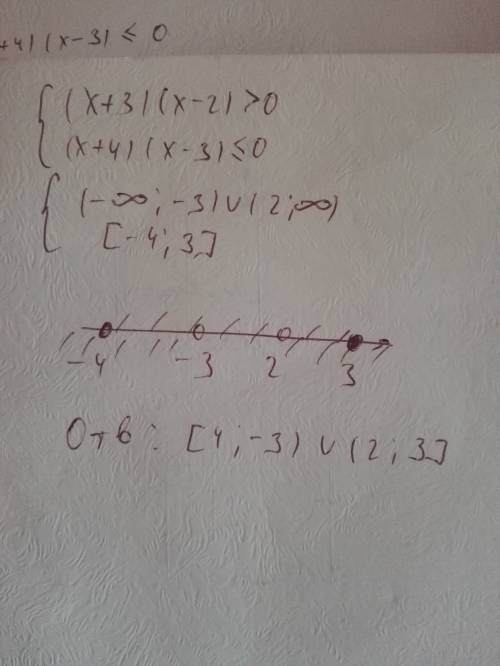 +4) (x-3) ≤ 0
{ (x+3)(x-2)>0
(x+4)(x-3)≤0
{ (-∞; -3)∪(2;∞)
[-4; 3]
-4 -3 2 3
Отв: [4;-3) ∪ (2; 3]